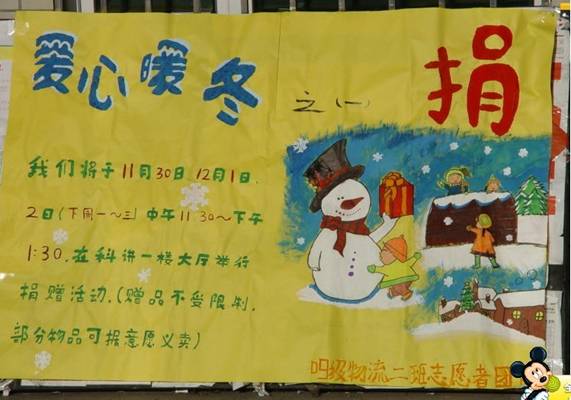 爱心暖冬之(一) 捐
我们将于11月30日12月1日,
2日(下周一~三)中午11:30~下午
1:30.在科讲一楼大厅举行
捐赠活动.(赠品不受限制,
部分物品可据意愿义卖)
09级物流二班志愿者团